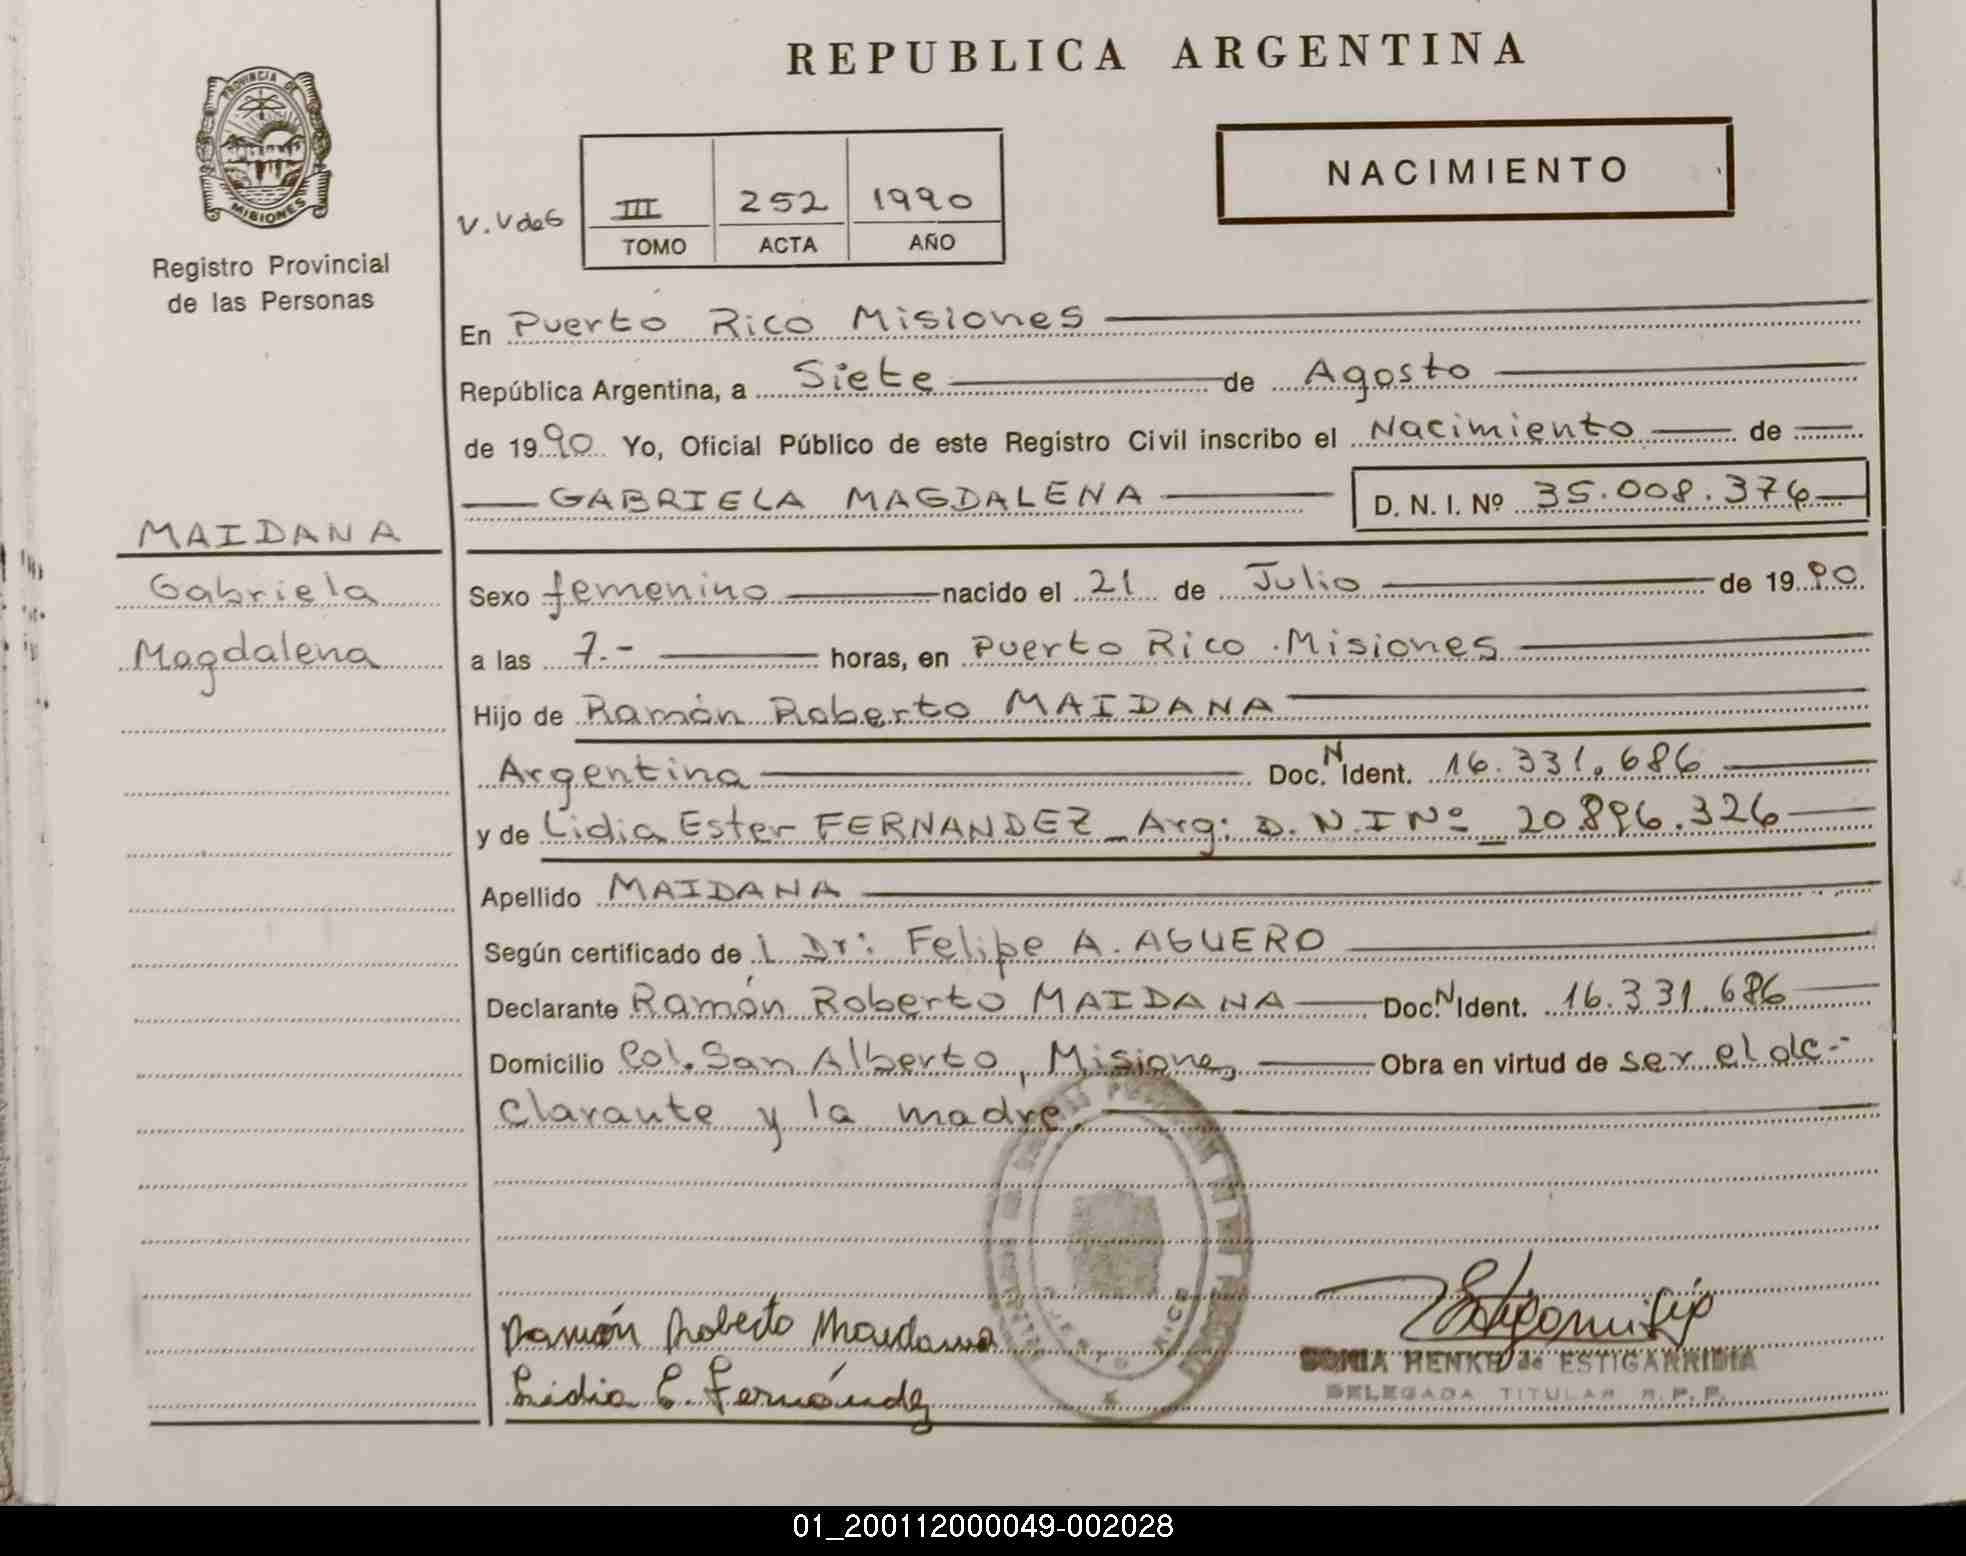 REPUBLICA ARGENTINA
PROVINCIA DE MISIONES
Registro Provincial
de las Personas
NACIMIENTO
V. V de G
III 252 1990
TOMO ACTA AÑO
En Puerto Rico Misiones
República Argentina, a Siete de Agosto
de 1990 Yo, Oficial Público de este Registro Civil inscribo el Nacimiento de
GABRIELA MAGDALENA D. N. I. Nº 35.008.376
MAIDANA
Gabriela
Magdalena
Sexo femenino nacido el 21 de Julio de 1990
a las 7.- horas, en Puerto Rico . Misiones
Hijo de Ramón Roberto MAIDANA
Argentina Doc. N Ident. 16.331.686
y de Lidia Ester FERNANDEZ - Arg: D. N. I Nº 20.896.326
Apellido MAIDANA
Según certificado de l Dr: Felipe A. AGUERO
Declarante Ramón Roberto MAIDANA Doc. N Ident. 16.331.686
Domicilio Col. San Alberto, Misiones Obra en virtud de ser el de-
clarante y la madre.
PUERTO RICO
Ramón Roberto Maidana
Lidia E. Fernández
SONIA HENKE de ESTIGARRIBIA
DELEGADA TITULAR R. P. P.
01_200112000049-002028